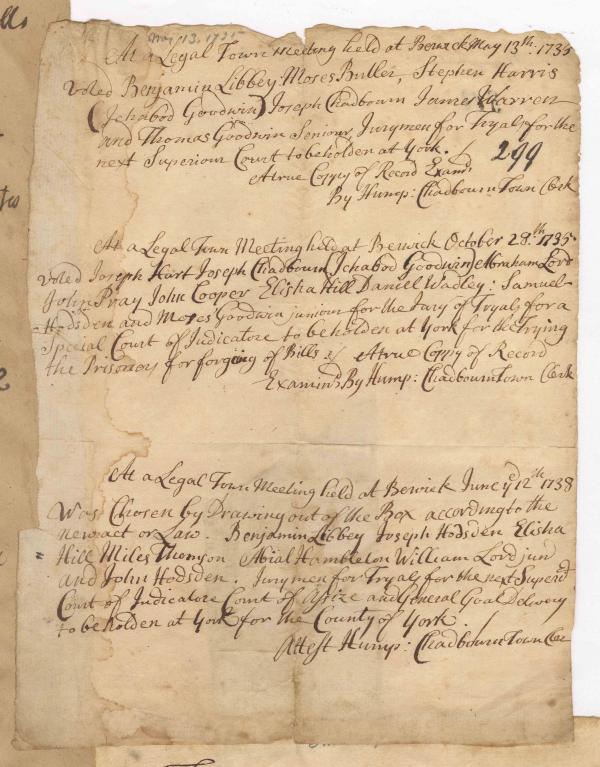 May 13. 1735
At a Legal Town Meeting held at Berwick May 13th. 1735
Voted Benjamin Libbey Moses Butler, Stephen Harris
(Ichabod Goodwin) Joseph Chadbourn James Warren
and Thomas Goodwin Seniour, Jurymen for Tryals for the
next Superiour Court to be holden at York.
299
A true Copy of Record Examd
By Hump: Chadbourn Town Clerk
At a Legal Town Meeting held at Berwick October 28.th 1735
Voted Joseph Hart Joseph Chadbourn (Ichabod Goodwin) Abraham Lord
John Pray John Cooper Elisha Hill Daniel Wadley: Samuel
Hodsden and Moses Goodwin juniour for the Jury of Tryals for a
Special Court of Judicature to be holden at York for the Trying
the Prisoners for forging of Bills &c A true Copy of Record
Examind By Hump: Chadbourn Town Clerk
At a Legal Town Meeting held at Berwick June ye 12th 1738
Was Chosen by Drawing out of the Box according to the
new act or Law. Benjamin Libbey Joseph Hodsden Elisha
Hill Miles Thomson Abial Hambleton William Lord jun
and John Hodsden. Jurymen for Tryals for the next Superd
Court of Judicature Court of Assize and General Goal Delivery
to be holden at York for the County of York.
Attest Hump: Chadbourn Town Cler
lls